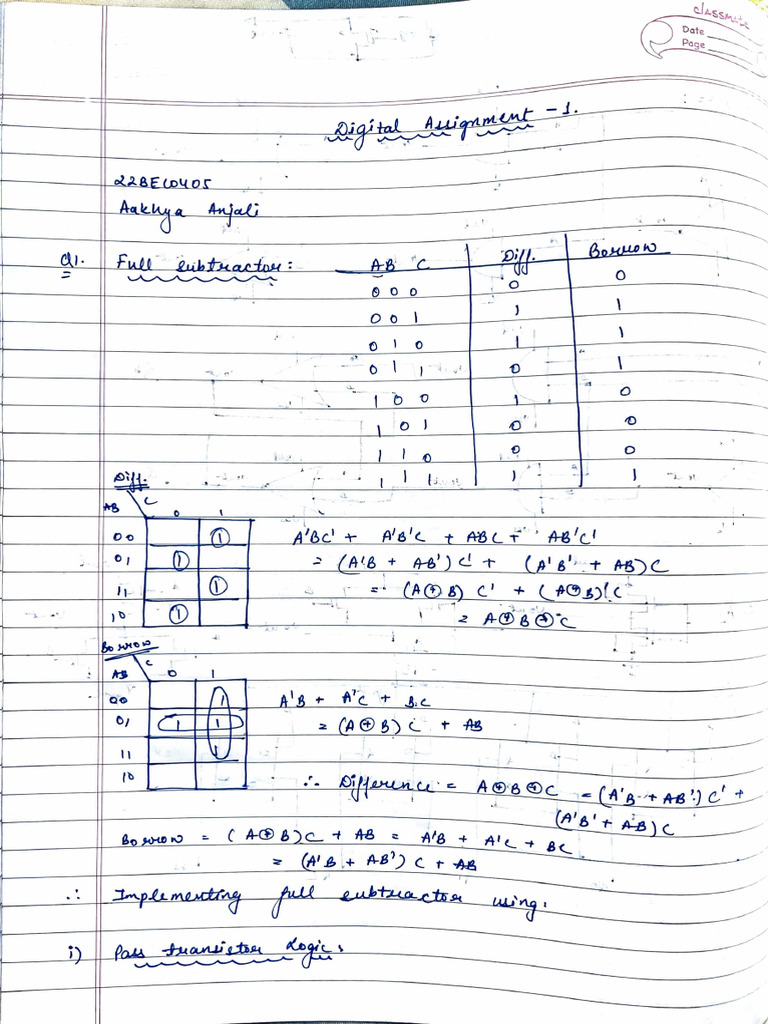 classmate
Date
Page
Digital Assignment - 1.
22BEC0405
Aakhya Anjali
Q1. Full subtractor:
A B C Diff. Borrow
0 0 0 0 0
0 0 1 1 1
0 1 0 1 1
0 1 1 0 1
1 0 0 1 0
1 0 1 0 0
1 1 0 0 0
1 1 1 1 1
Diff.
AB C 0 1
00 1
01 1
11 1
10 1
A'BC' + A'B'C + ABC + AB'C'
= (A'B + AB') C' + (A'B' + AB)C
= (A⊕B) C' + (A⊕B)'C
= A⊕B⊕C
Borrow
AB C 0 1
00 1
01 1 1
11 1
10
A'B + A'C + BC
= (A⊕B) C + AB
∴ Difference = A⊕B⊕C = (A'B + AB') C' +
(A'B' + AB)C
Borrow = (A⊕B)C + AB = A'B + A'C + BC
= (A'B + AB') C + AB
∴ Implementing full subtractor using:
i) Pass transistor Logic: